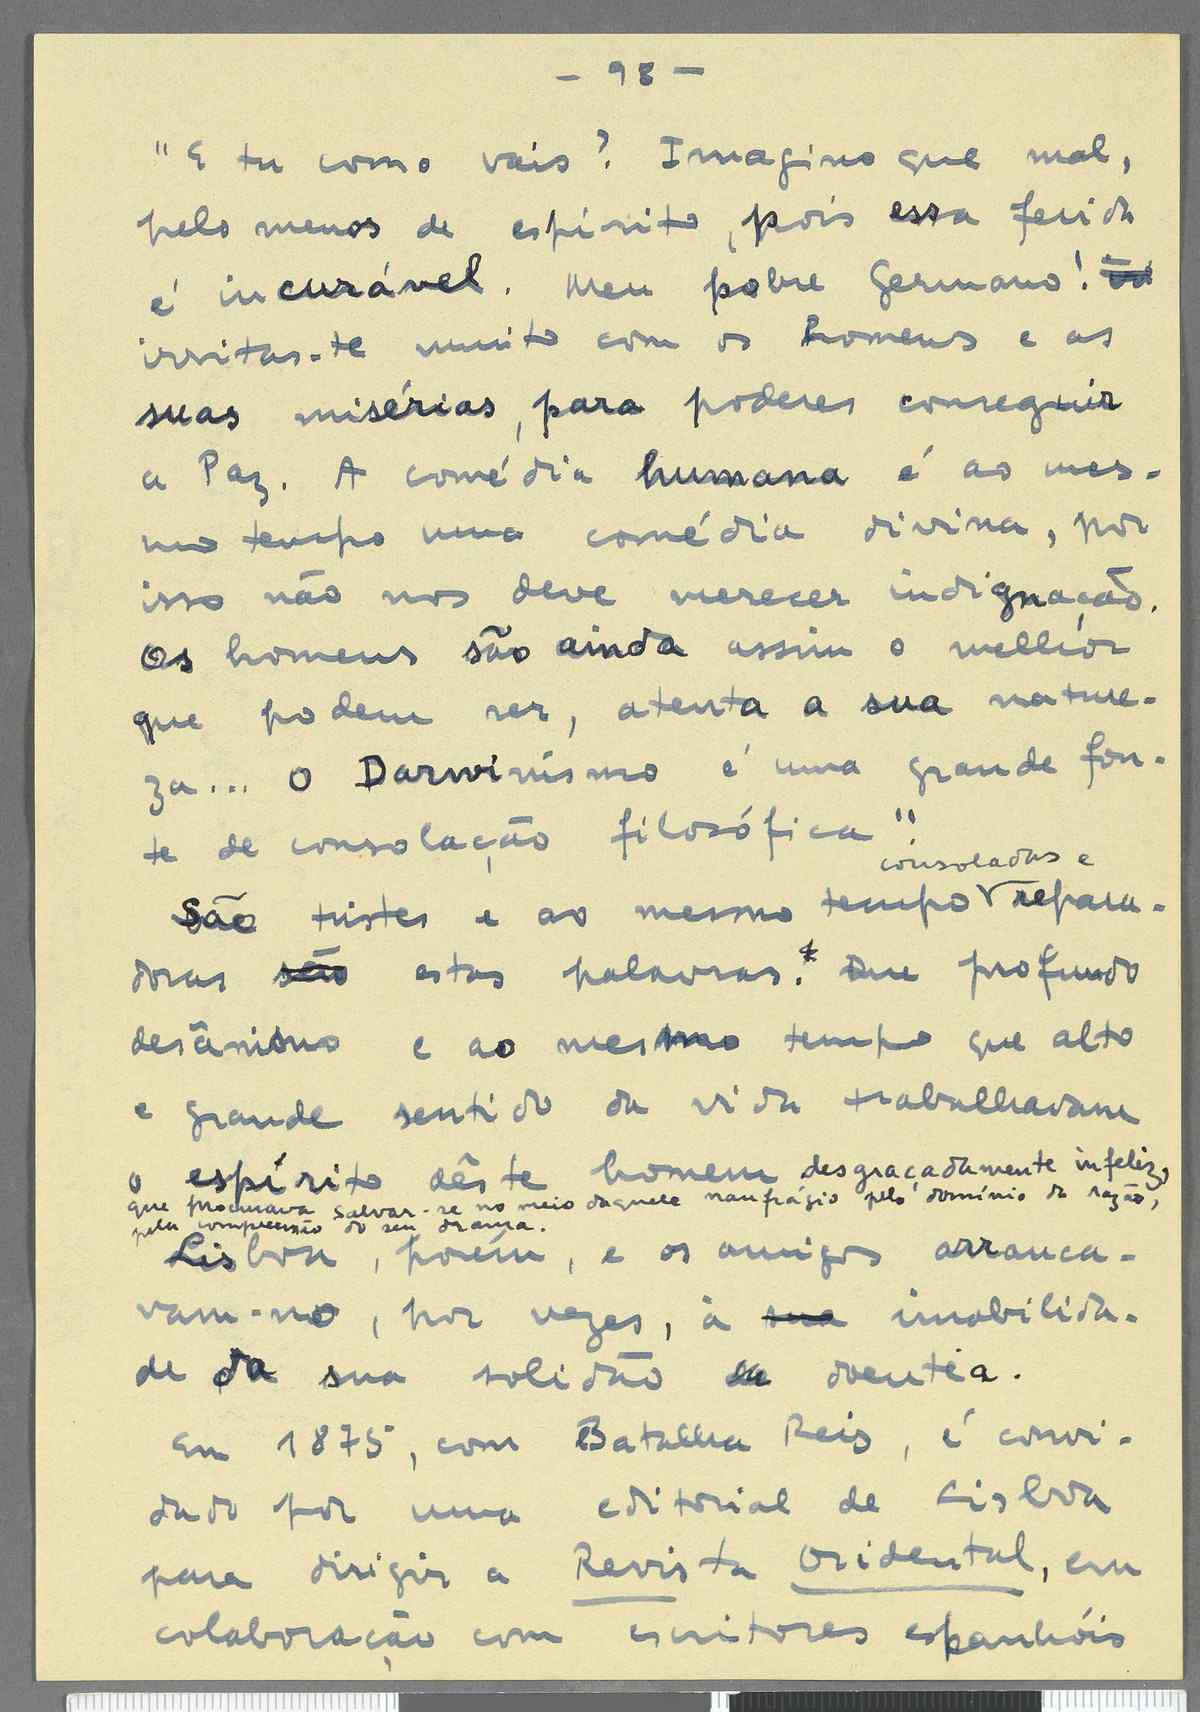 - 93 -
"E tu como vais? Imagino que mal,
pelo menos de espírito, pois essa ferida
é incurável. Meu pobre Germano!
irritas-te muito com os homens e as
suas misérias, para poderes conseguir
a Paz. A comédia humana é ao mes-
mo tempo uma comédia divina, por
isso não nos deve merecer indignação.
Os homens são ainda assim o melhór
que podem ser, atenta a sua nature-
za... O Darwinismo é uma grande fon-
te de consolação filosófica".
consoladas e
São tristes e ao mesmo tempo repara-
doras são estas palavras. Que profundo
desânimo e ao mesmo tempo que alto
e grande sentido da vida trabalhavam
o espírito dêste homem desgraçadamente infeliz,
que procurava salvar-se no meio daquele naufrágio pelo domínio da razão,
pela compreensão do seu drama.
Lisboa, porém, e os amigos arranca-
vam-no, por vezes, à sua imobilida-
de da sua solidão doentia.
Em 1875, com Batalha Reis, é convi-
dado por uma editorial de Lisboa
para dirigir a Revista Ocidental, em
colaboração com escritores espanhóis